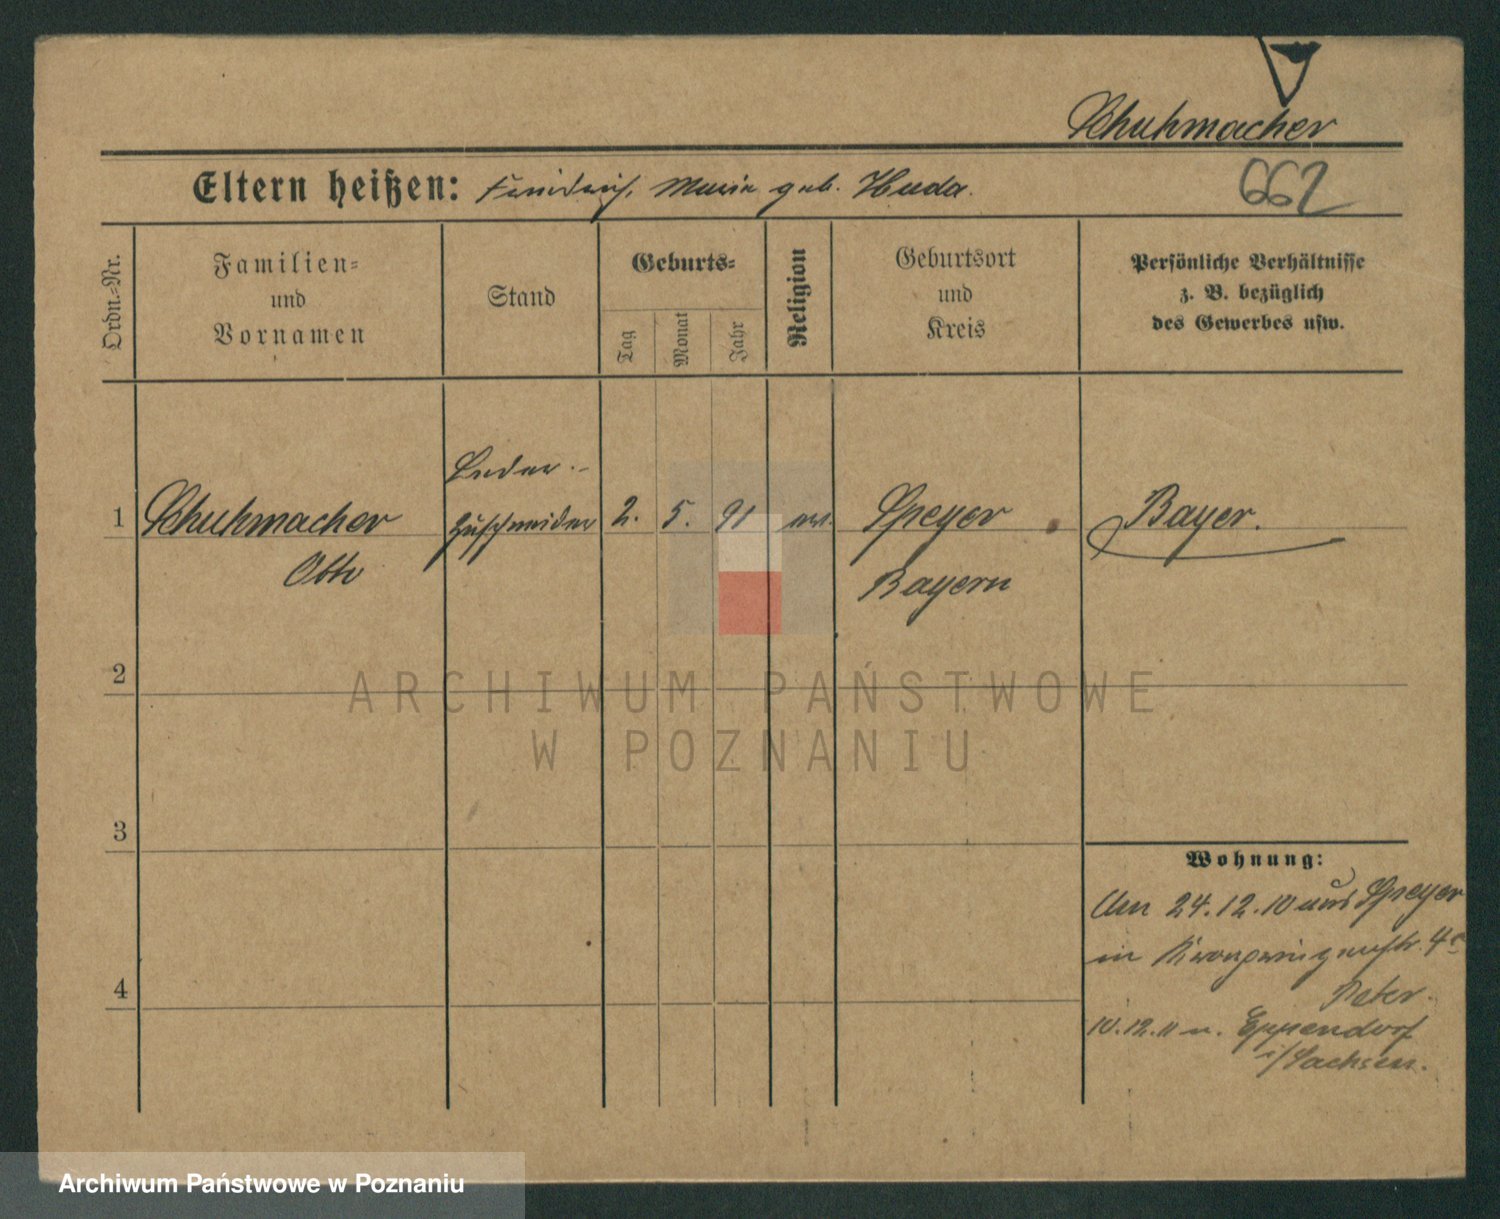 Schuhmacher
Eltern heißen: Friedrich, Marie geb. Huda.
662
Ordn.-Nr.
Familien-
und
Vornamen
Stand
Geburts-
Tag
Monat
Jahr
Religion
Geburtsort
und
Kreis
Persönliche Verhältnisse
z. B. bezüglich
des Gewerbes usw.
1
Schuhmacher
Otto
Leder-
zuschneider
2. 5. 91
ev.
Speyer
Bayern
Bayer.
2
ARCHIWUM PAŃSTWOWE
W POZNANIU
3
4
Wohnung:
Am 24.12.10 aus Speyer
in Kronprinzenstr. 4
10.12.11 n. Eppendorf
i/Sachsen.
Archiwum Państwowe w Poznaniu